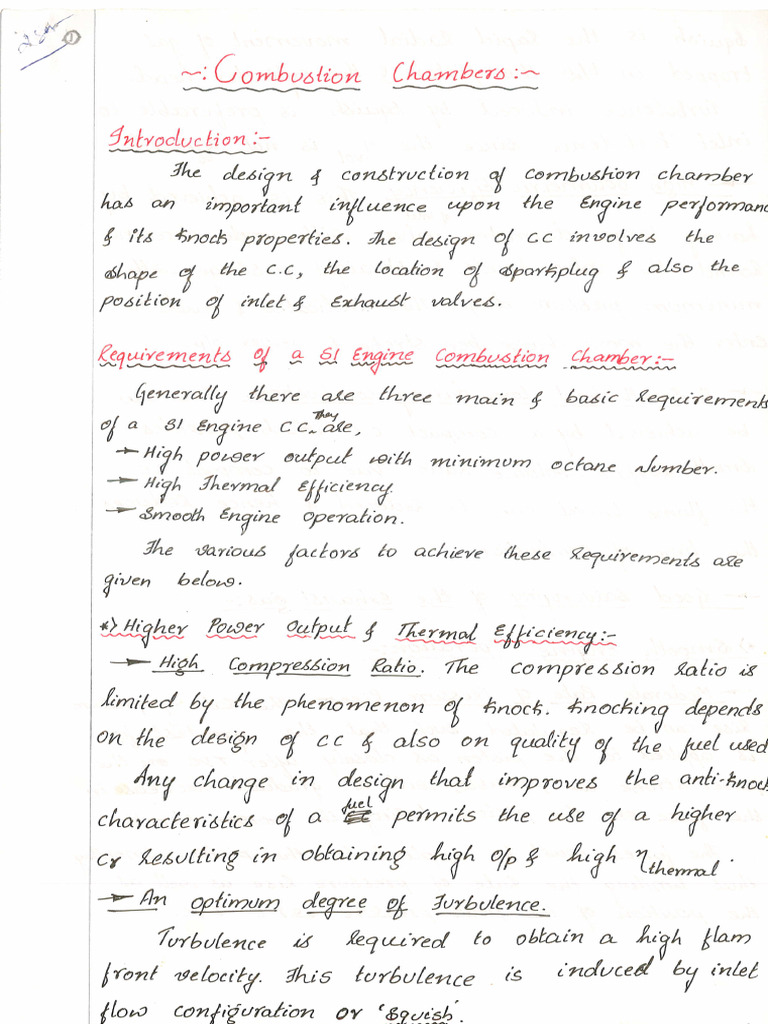 1
~: Combustion Chambers :~
Introduction :-
The design & construction of combustion chamber
has an important influence upon the Engine performanc
& its knock properties. The design of CC involves the
shape of the C.C, the location of sparkplug & also the
position of inlet & Exhaust valves.
Requirements of a SI Engine Combustion Chamber :-
Generally there are three main & basic Requirements
of a SI Engine CC. They are,
→ High power output with minimum octane Number.
→ High Thermal Efficiency.
→ Smooth Engine operation.
The various factors to achieve these Requirements are
given below.
*) Higher Power Output & Thermal Efficiency :-
→ High Compression Ratio. The compression ratio is
limited by the phenomenon of knock. Knocking depends
on the design of CC & also on quality of the fuel used
Any change in design that improves the anti-knock
characteristics of a fuel permits the use of a higher
Cr Resulting in obtaining high o/p & high η thermal.
→ An optimum degree of Turbulence.
Turbulence is Required to obtain a high flam
front velocity. This turbulence is induced by inlet
flow configuration or 'Squish'.